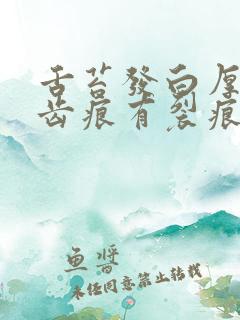 舌苔發白厚
齒痕有裂痕
鱼將
未经同意禁止转载